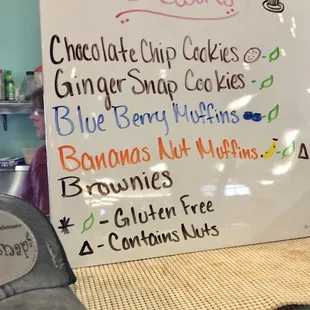 Chocolate Chip Cookies
Ginger Snap Cookies -
Blue Berry Muffins
Bananas Nut Muffins -
Brownies
* - Gluten Free
- Contains Nuts